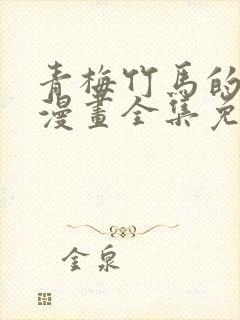 青梅竹馬的
漫畫全集免
金泉